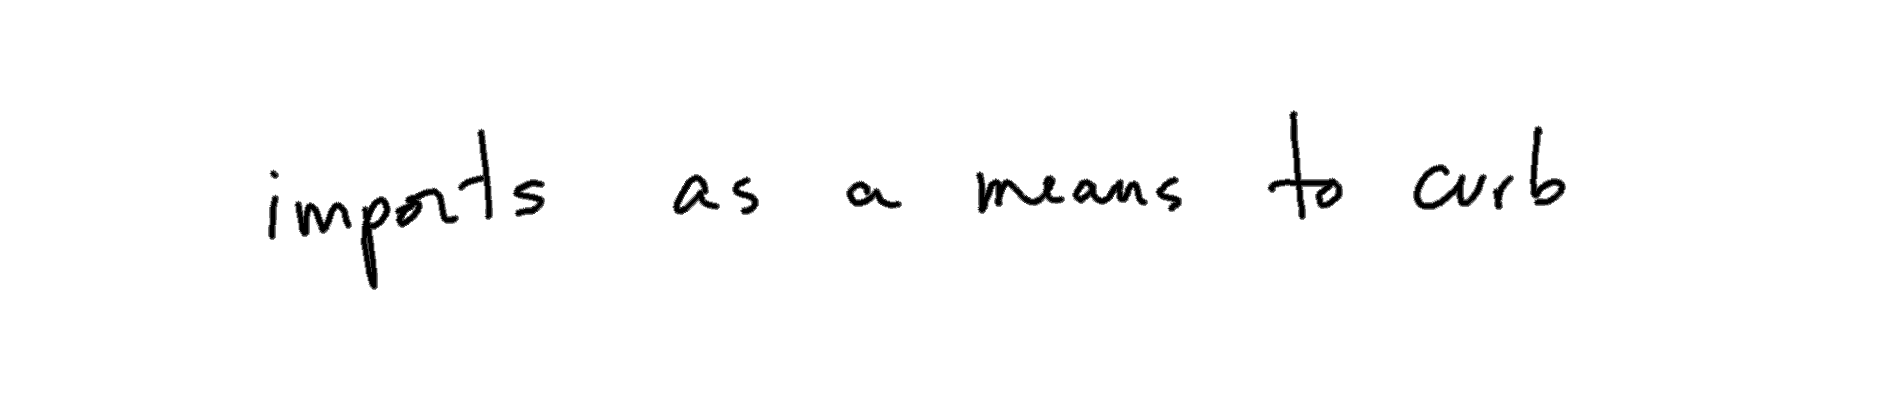 imports as a means to curb